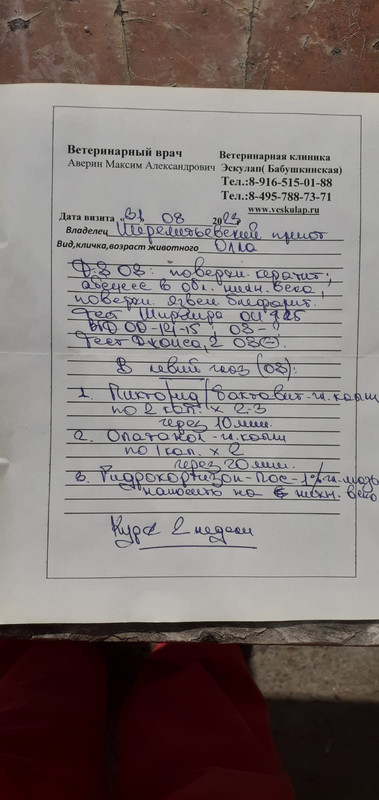 Ветеринарный врач
Аверин Максим Александрович
Ветеринарная клиника
Эскулап( Бабушкинская)
Тел.:8-916-515-01-88
Тел.:8-495-788-73-71
www.veskulap.ru
Дата визита „31 08 2023
Владелец Шереметьевский приют
Вид,кличка,возраст животного Олла
Д-З OS: поверхн. кератит;
абсцесс в обл. нижн. века,
поверхн. язвен. блефарит.
Тест Ширмера
Тест Джонса 2 OS(-).
В левый глаз (OS):
1. /Бактавит-гл. капли
по 2 кап. х 2-3
через 10 мин.
2. Опатанол-гл. капли
по 1 кап. х 2
через 20 мин.
3. Гидрокортизон-Пос-1% гл. мазь
наносить на нижн. веко
Курс 2 недели